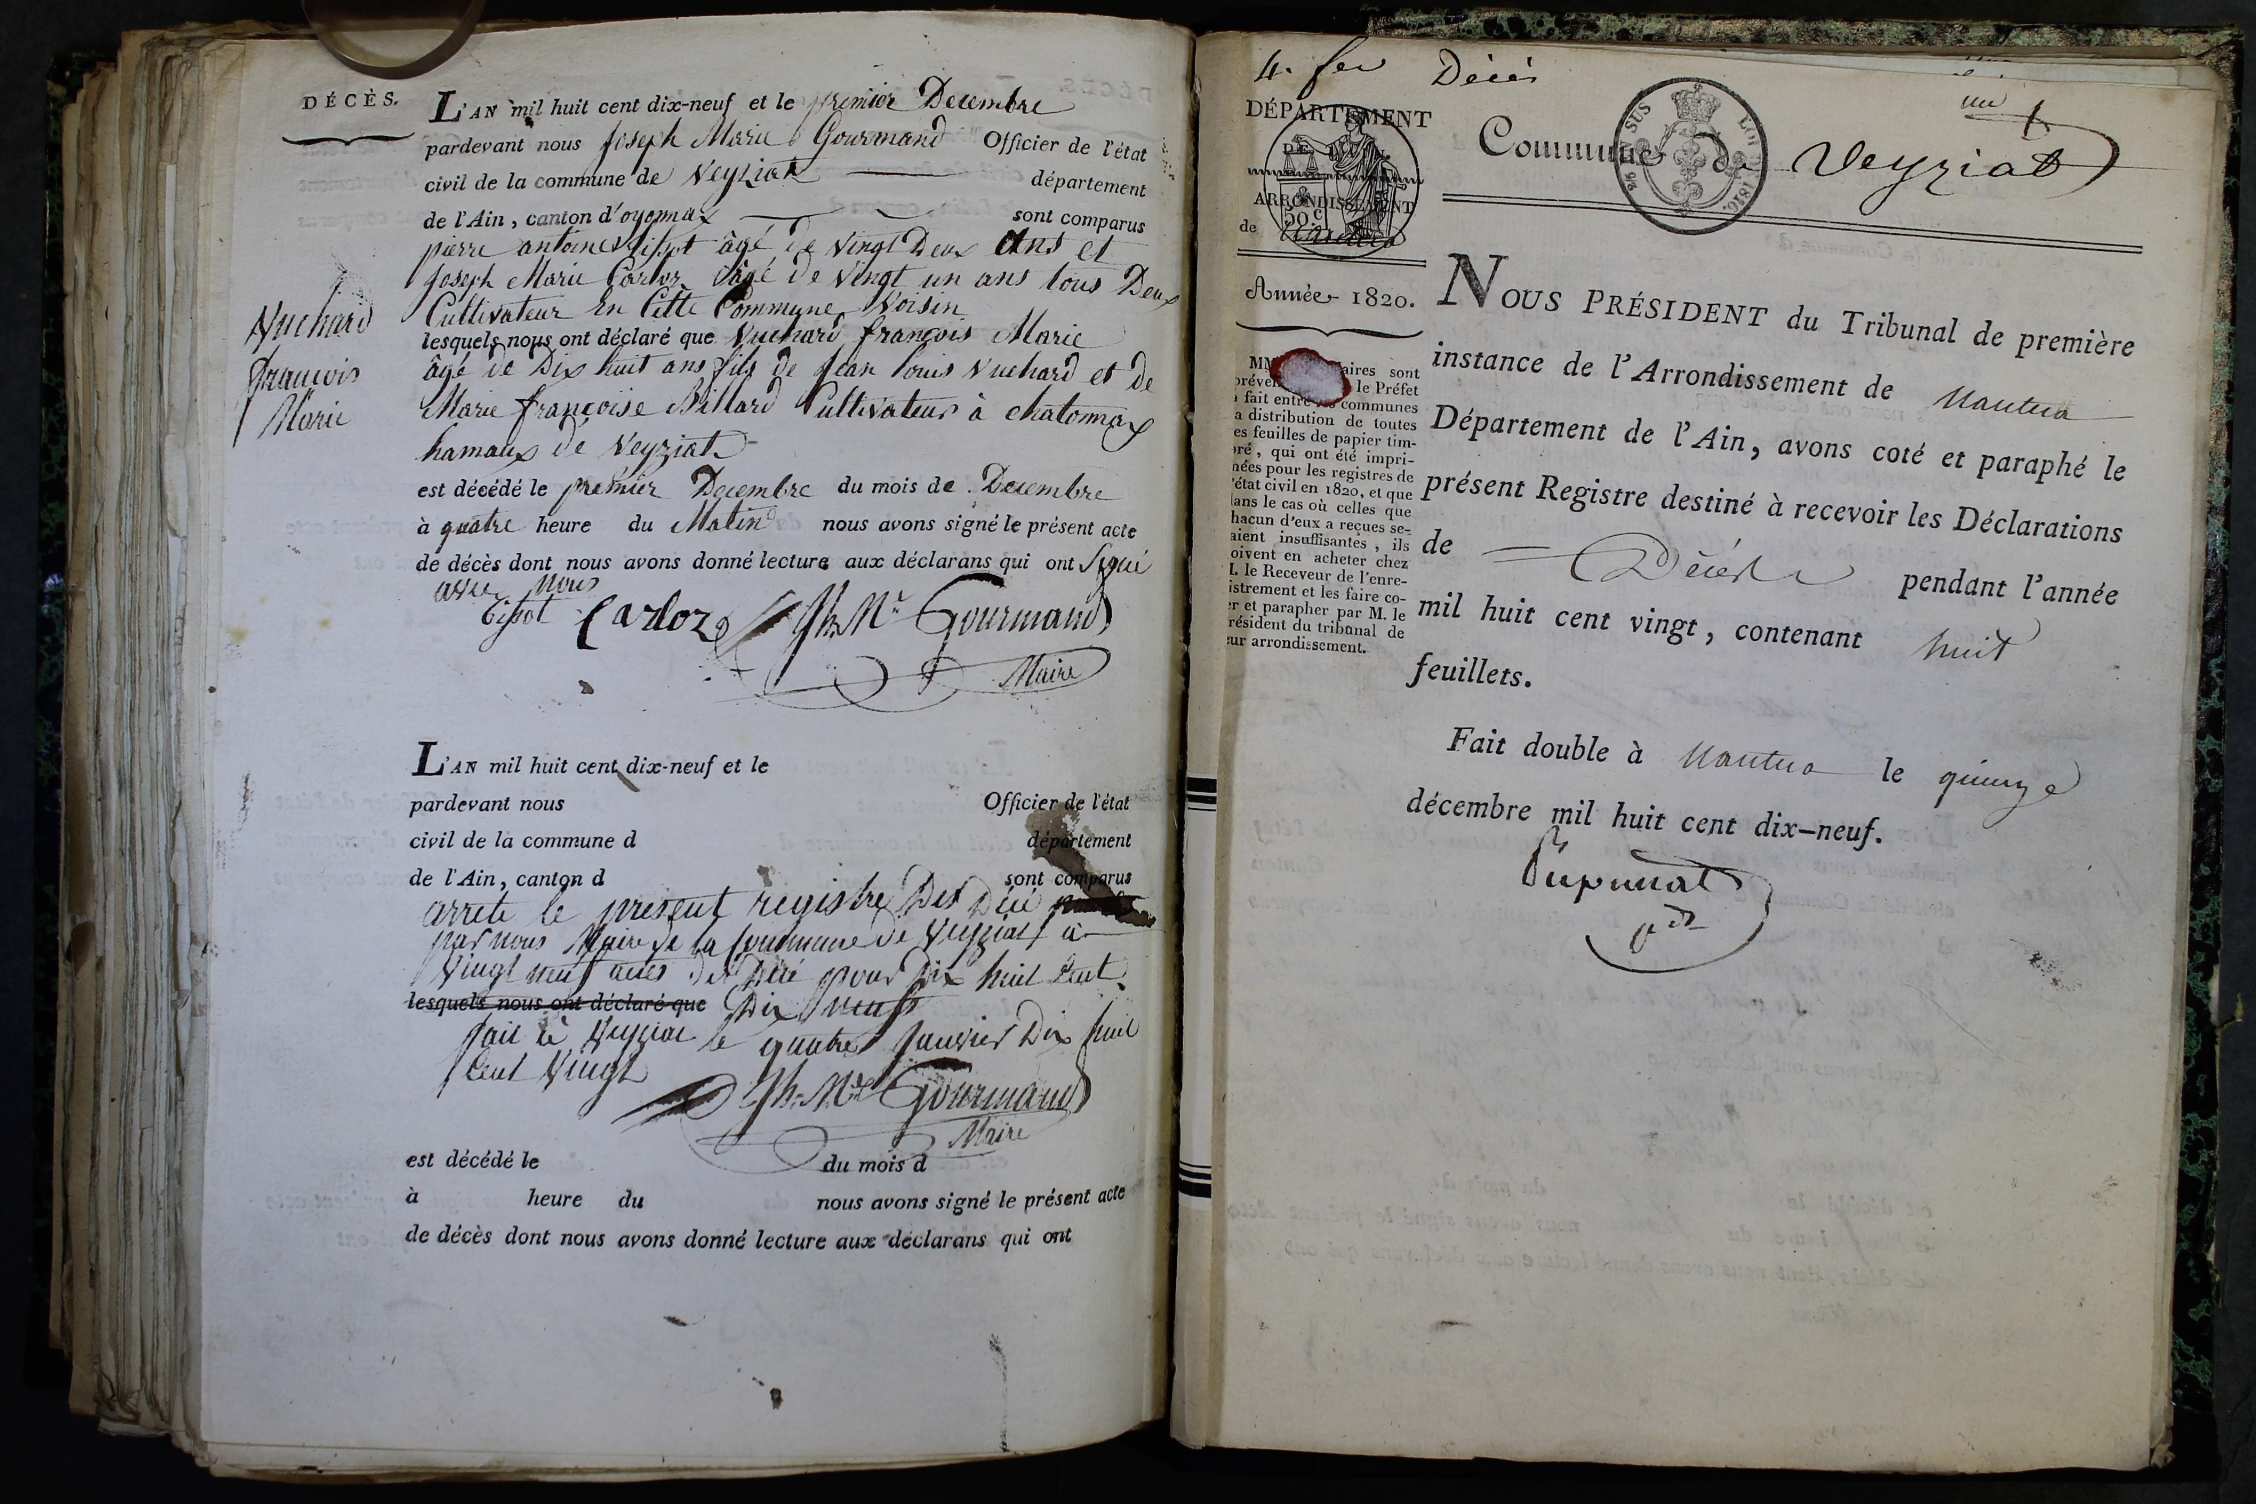 DÉCÈS.
L'AN mil huit cent dix-neuf et le premier Decembre
pardevant nous Joseph Marie Gourmand Officier de l'état
civil de la commune de Veyziat département
de l'Ain, canton d'oyonnax sont comparus
pierre antoine tissot âgé de vingt Deux ans et
Joseph Marie Carloz âgé de vingt un ans tous Deux
Cultivateur En Cette Commune Voisin
lesquels nous ont déclaré que Vuchard françois Marie
âgé de Dix huit ans fils de Jean louis Vuchard et de
Marie françoise Billard Cultivateur à chatonnax
hamaux de Veyziat
est décédé le premier Decembre du mois de Decembre
à quatre heure du Matin nous avons signé le présent acte
de décès dont nous avons donné lecture aux déclarans qui ont signé
avec nous
Vuchard
françois
Marie
tissot Carloz Jh. Mie Gourmand
Maire
L'AN mil huit cent dix-neuf et le
pardevant nous Officier de l'état
civil de la commune d département
de l'Ain, canton d sont comparus
arrete le present registre Des Décé
par nous Maire de la Commune de Veyziat à
Vingt neuf actes De Décé pour Dix huit Cent
lesquels nous ont déclaré que Dix neuf
fait à Veyziat le quatre Janvier Dix huit
Cent Vingt
Jh. Mie Gourmand
Maire
est décédé le du mois d
à heure du nous avons signé le présent acte
de décès dont nous avons donné lecture aux déclarans qui ont
4. feu Décès
un
DÉPARTEMENT
DE L'AIN
ARRONDISSEMENT
50 c
de Nantua
Année 1820.
Commune de Veyziat
25 SUS LOI DE 1816.
MM. aires sont
préven le Préfet
a fait entre les communes
la distribution de toutes
es feuilles de papier tim-
bré, qui ont été impri-
mées pour les registres de
l'état civil en 1820, et que
dans le cas où celles que
chacun d'eux a reçues se-
raient insuffisantes, ils
doivent en acheter chez
M. le Receveur de l'enre-
gistrement et les faire co-
er et parapher par M. le
résident du tribunal de
eur arrondissement.
NOUS PRÉSIDENT du Tribunal de première
instance de l'Arrondissement de Nantua
Département de l'Ain, avons coté et paraphé le
présent Registre destiné à recevoir les Déclarations
de Décès pendant l'année
mil huit cent vingt, contenant huit
feuillets.
Fait double à Nantua le quinze
décembre mil huit cent dix-neuf.